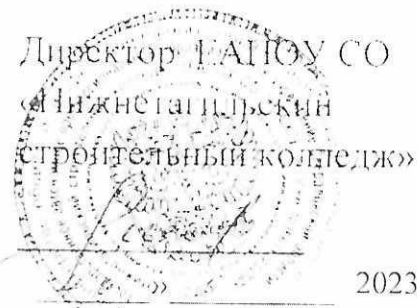 Директор ГАПОУ СО
«Нижнетагильский
строительный колледж»
» 2023